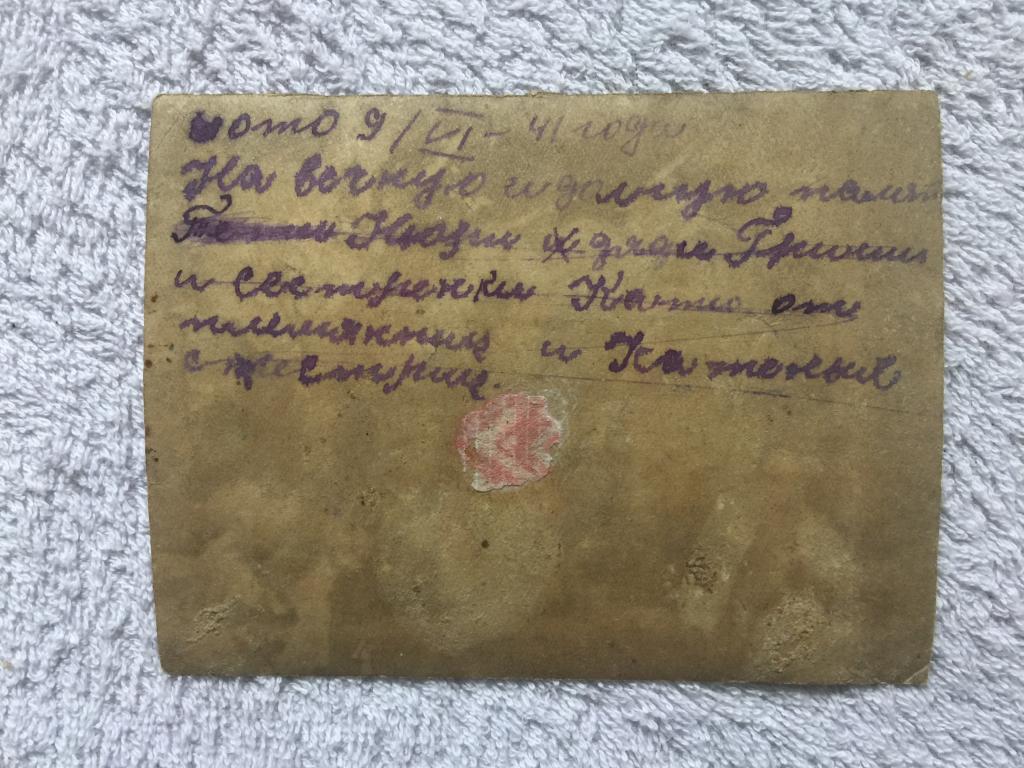 фото 9/VI - 41 года
На вечную и долгую памят
Тети Нюзи и дяди Гриши
и сестренки Кати от
племянниц и Катеньки
сестриц.